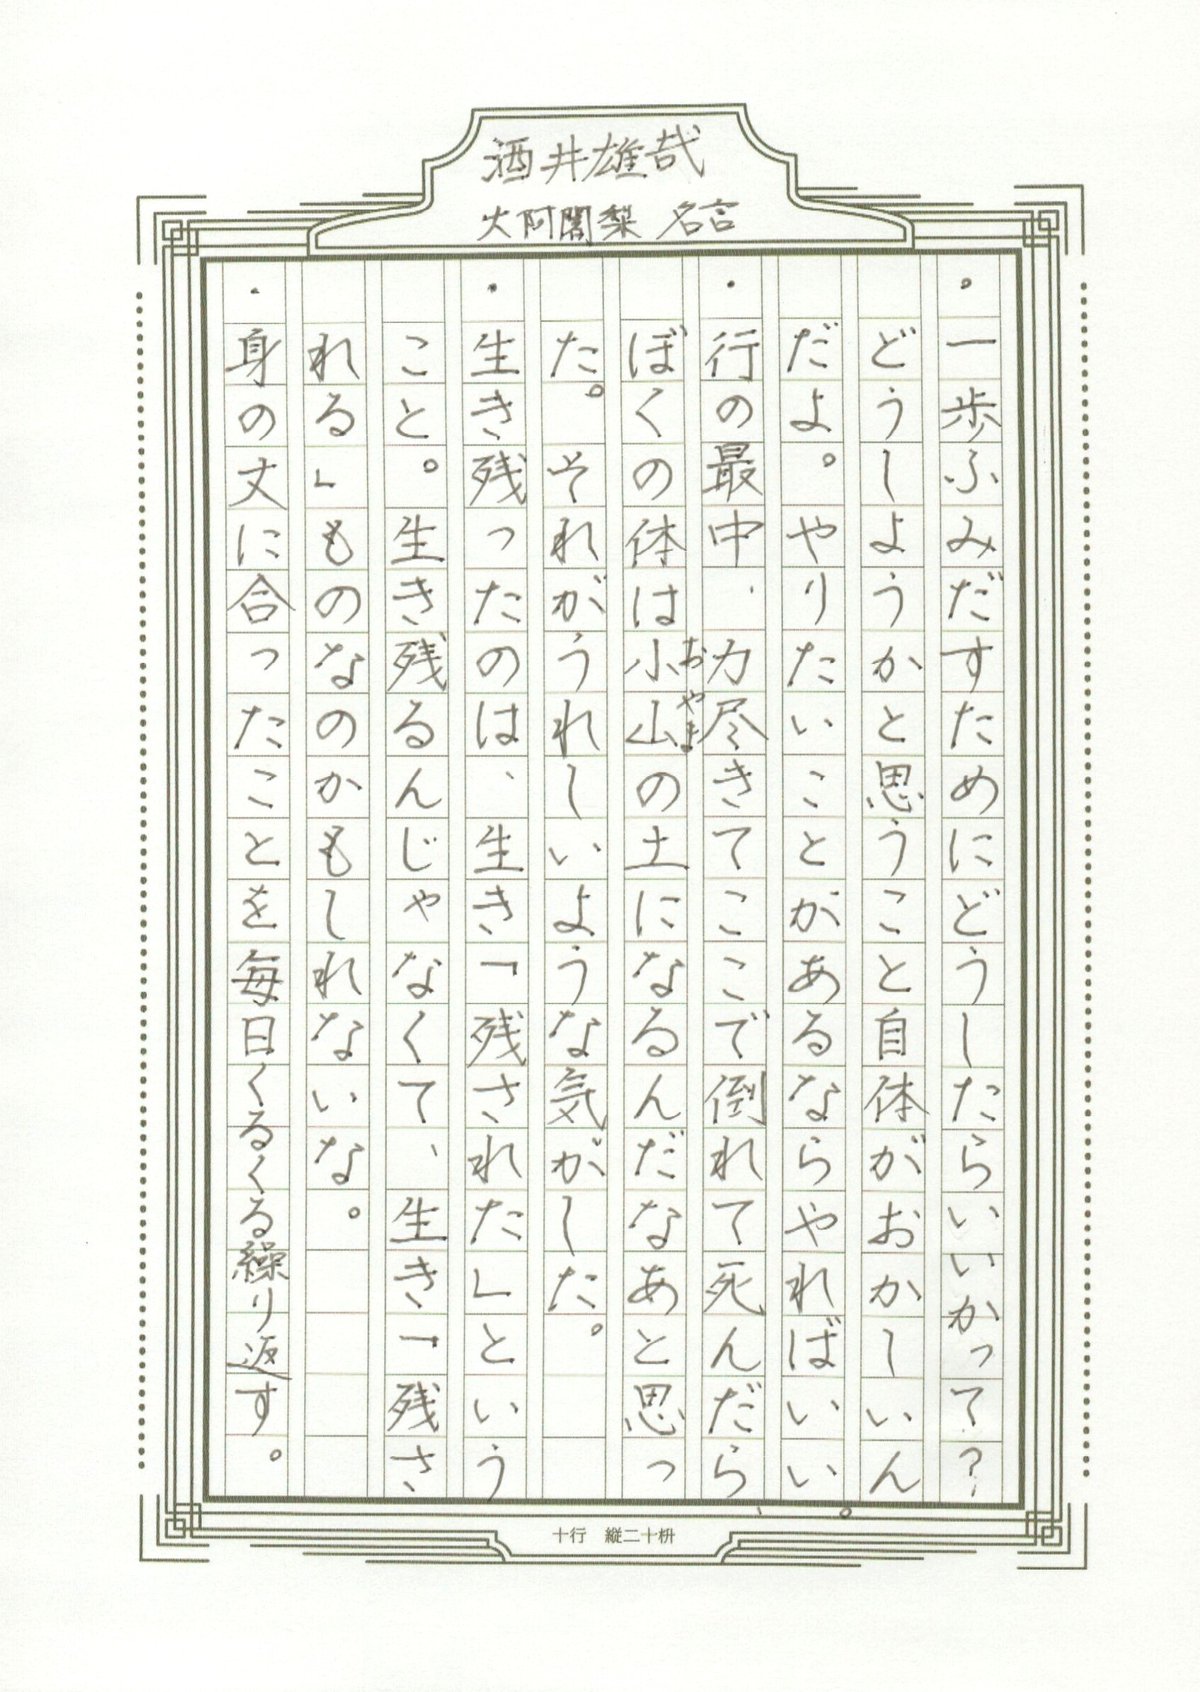 酒井雄哉
大阿闍梨 名言
・一歩ふみだすためにどうしたらいいかって？
どうしようかと思うこと自体がおかしいん
だよ。やりたいことがあるならやればいい。
・行の最中、力尽きてここで倒れて死んだら、
ぼくの体は小山の土になるんだなあと思っ
おやま
た。それがうれしいような気がした。
・生き残ったのは、生き「残された」という
こと。生き残るんじゃなくて、生き「残さ
れる」ものなのかもしれないな。
・身の丈に合ったことを毎日くるくる繰り返す。
十行 縦二十枡